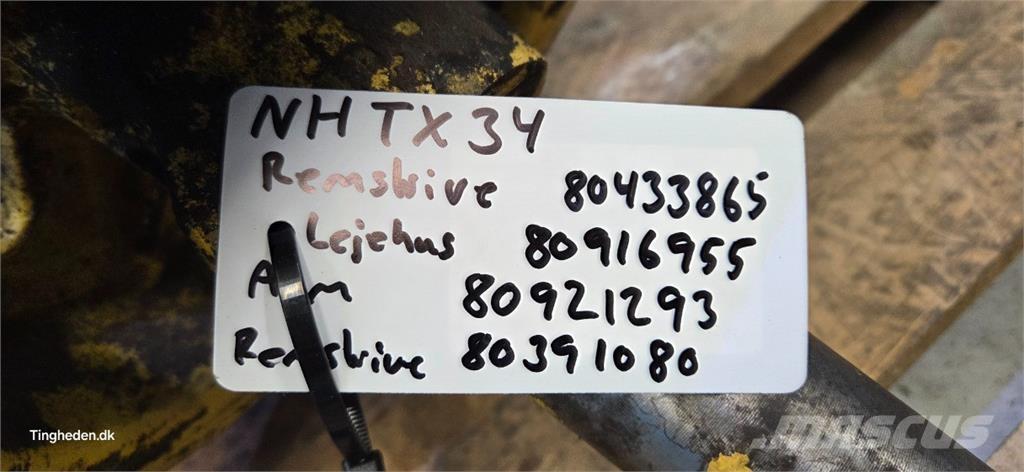 NH TX 34
Remskive 80433865
Lejehus 80916955
Arm 80921293
Remskive 80391080
Tingheden.dk
MASCUS